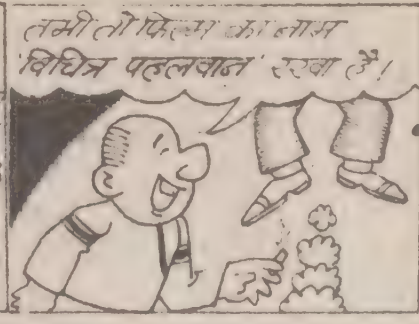 तभी तो फिल्म का नाम
'विचित्र पहलवान' रखा है!